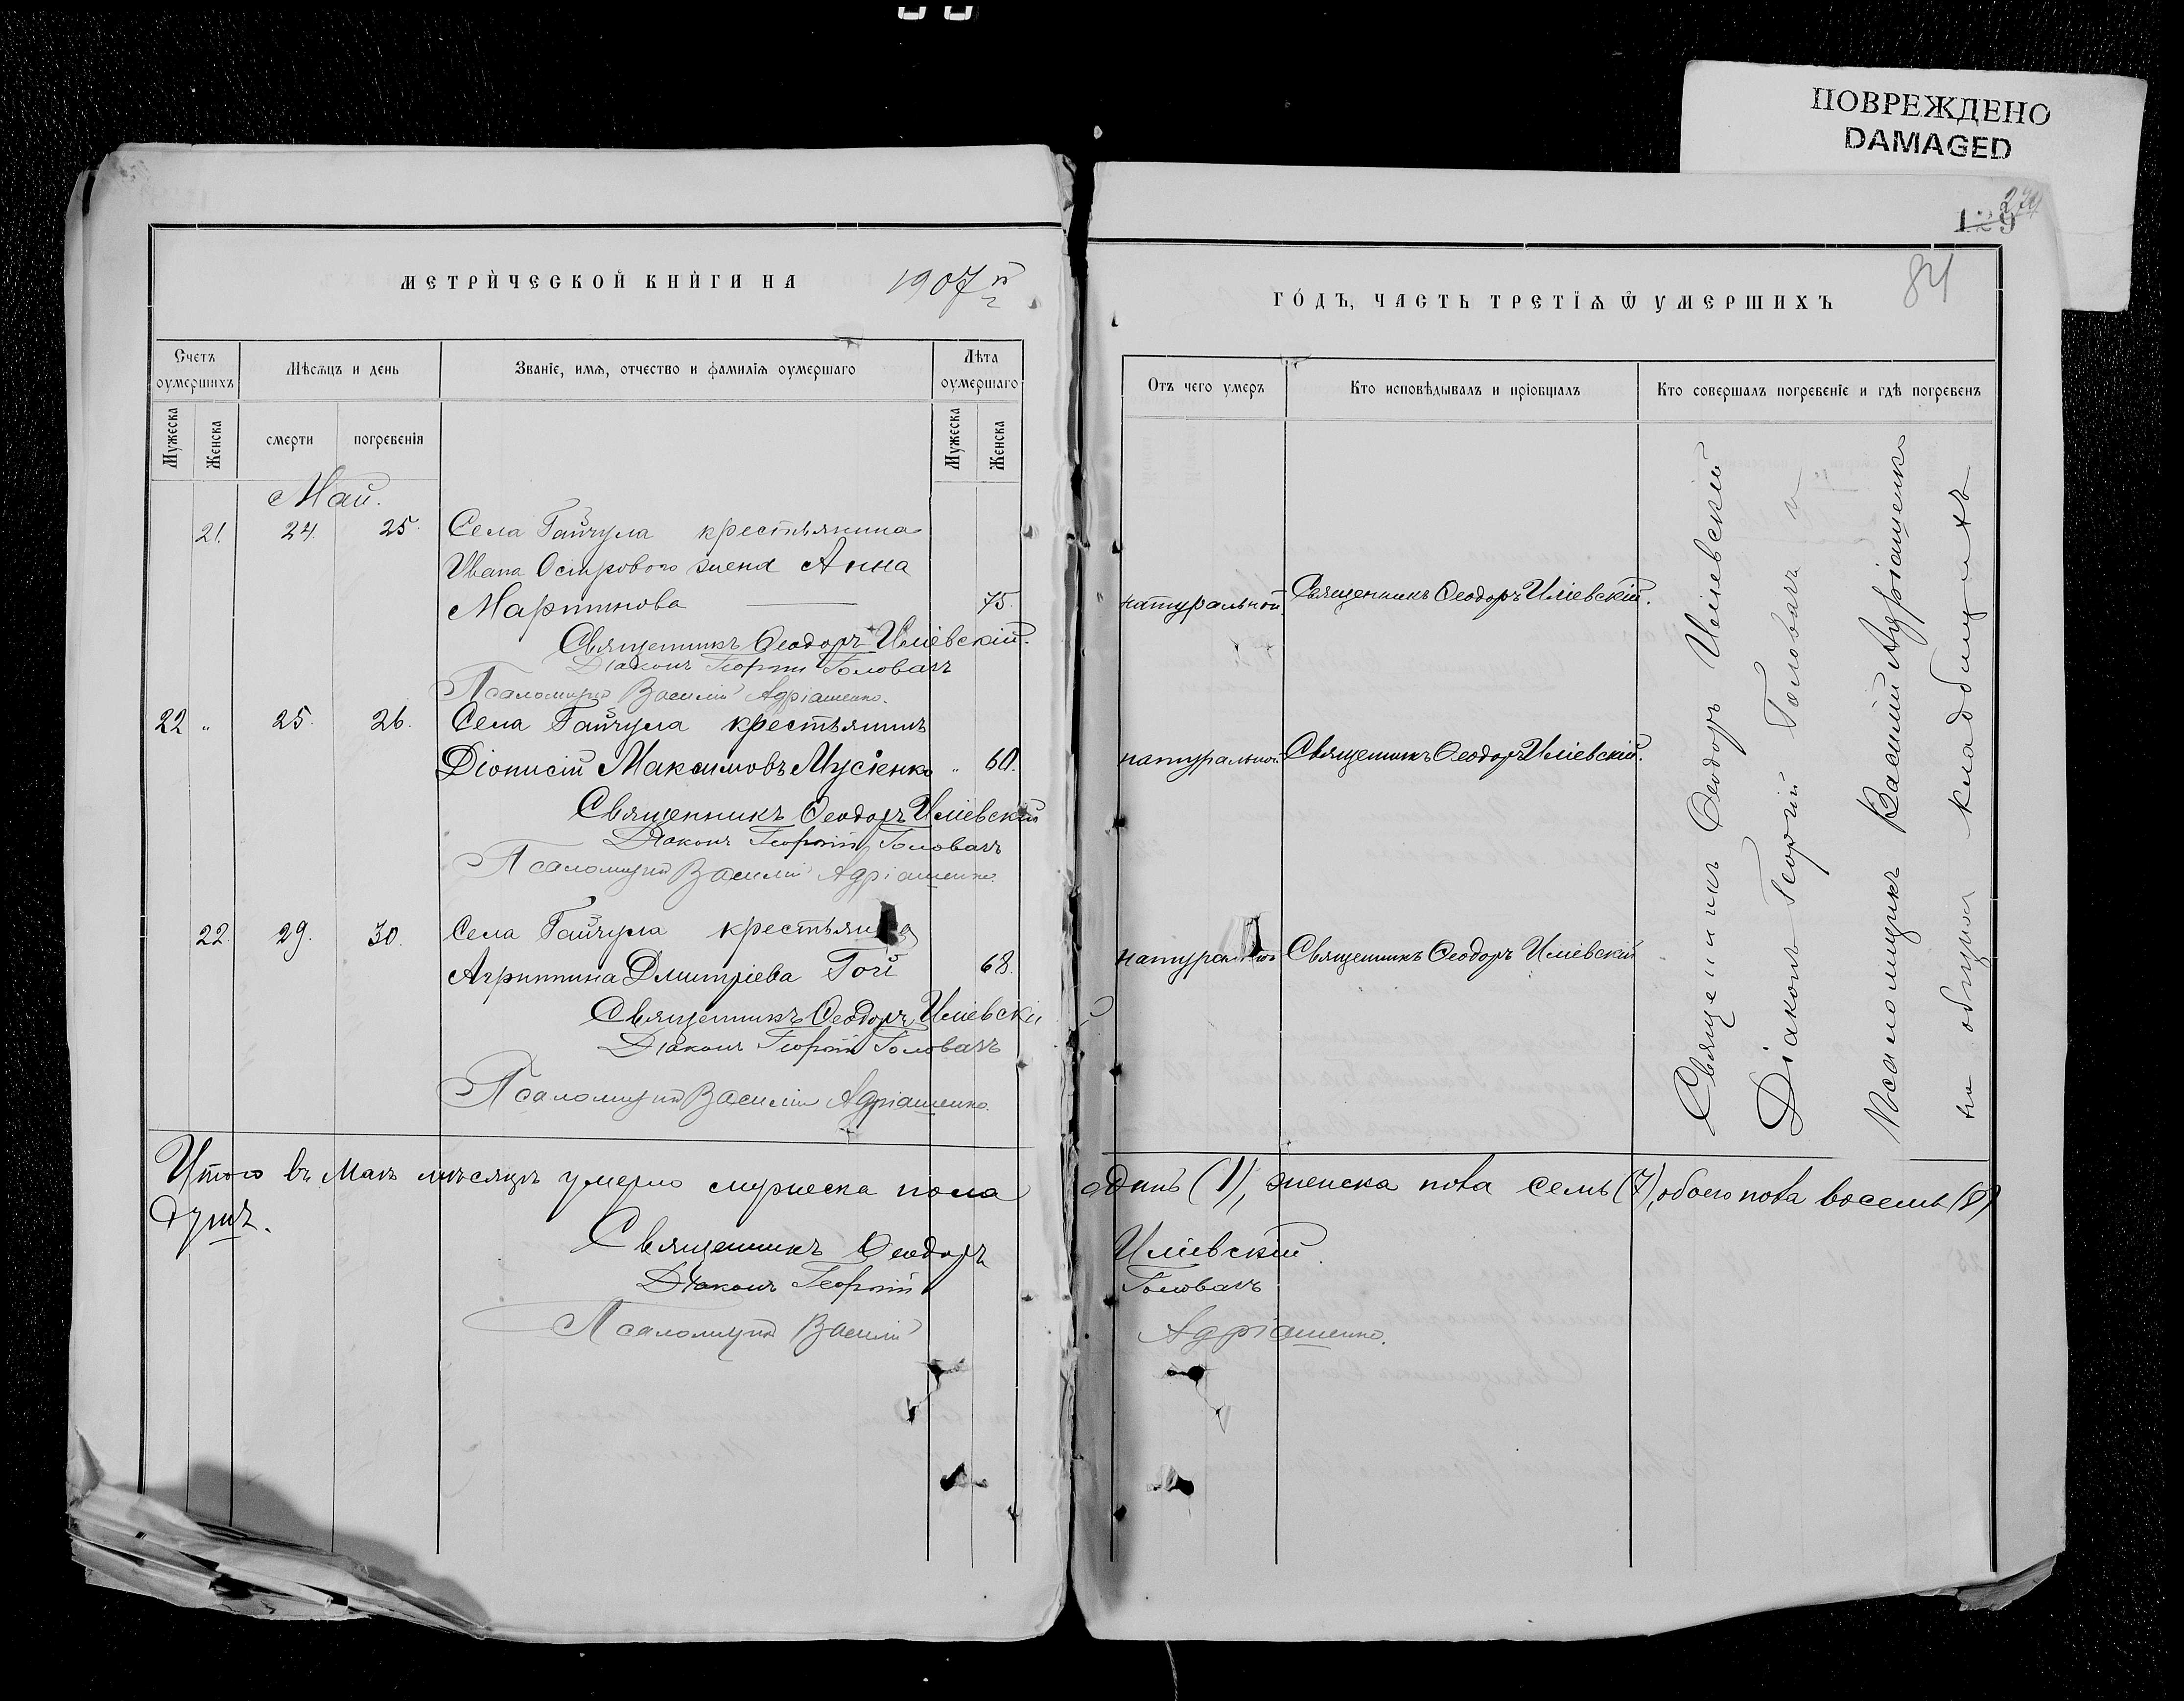 ПОВРЕЖДЕНО
DAMAGED
129
84
МЕТРИ́ЧЕСКОЙ КНИ́ГИ НА 1907й г
Счетъ оумершихъ
Мѣсяцъ и день
Званіе, имя, отчество и фамилія оумершаго
Лѣта оумершаго
Мужеска
Женска
смерти
погребенія
Мужеска
Женска
Май.
21. 24. 25. Села Гайчула крестьянина
Ивана Острового жена Анна
Мартинова 75.
Священникъ Ѳеодоръ Иліевскій.
Діаконъ Георгій Головачъ
Псаломщикъ Василій Адріашенко.
22 " 25. 26. Села Гайчула крестьянинъ
Діонисій Максимовъ Мусіенко " 60.
Священникъ Ѳеодоръ Иліевскій
Діаконъ Георгій Головачъ
Псаломщикъ Василій Адріашенко.
22. 29. 30. Села Гайчула крестьянка
Агриппина Дмитріева Гой 68.
Священникъ Ѳеодоръ Иліевскій
Діаконъ Георгій Головачъ
Псаломщикъ Василій Адріашенко.
Итого въ Маѣ мѣсяцѣ умерло мужеска пола
душъ.
Священникъ Ѳеодоръ
Діаконъ Георгій
Псаломщикъ Василій
ГО́ДЪ, ЧАСТЬ ТРЕТІЯ Ѿ УМЕРШИХЪ
Отъ чего умеръ
Кто исповѣдывалъ и пріобщалъ
Кто совершалъ погребеніе и гдѣ погребенъ
натуральной. Священникъ Ѳеодоръ Иліевскій.
натуральной. Священникъ Ѳеодоръ Иліевскій.
натуральной Священникъ Ѳеодоръ Иліевскій
Священникъ Ѳеодоръ Иліевскій
Діаконъ Георгій Головачъ и
Псаломщикъ Василій Адріашенко
на общихъ кладбищахъ
одинъ (1), женска пола семь (7), обоего пола восемь (8)
Иліевскій.
Головачъ
Адріашенко.